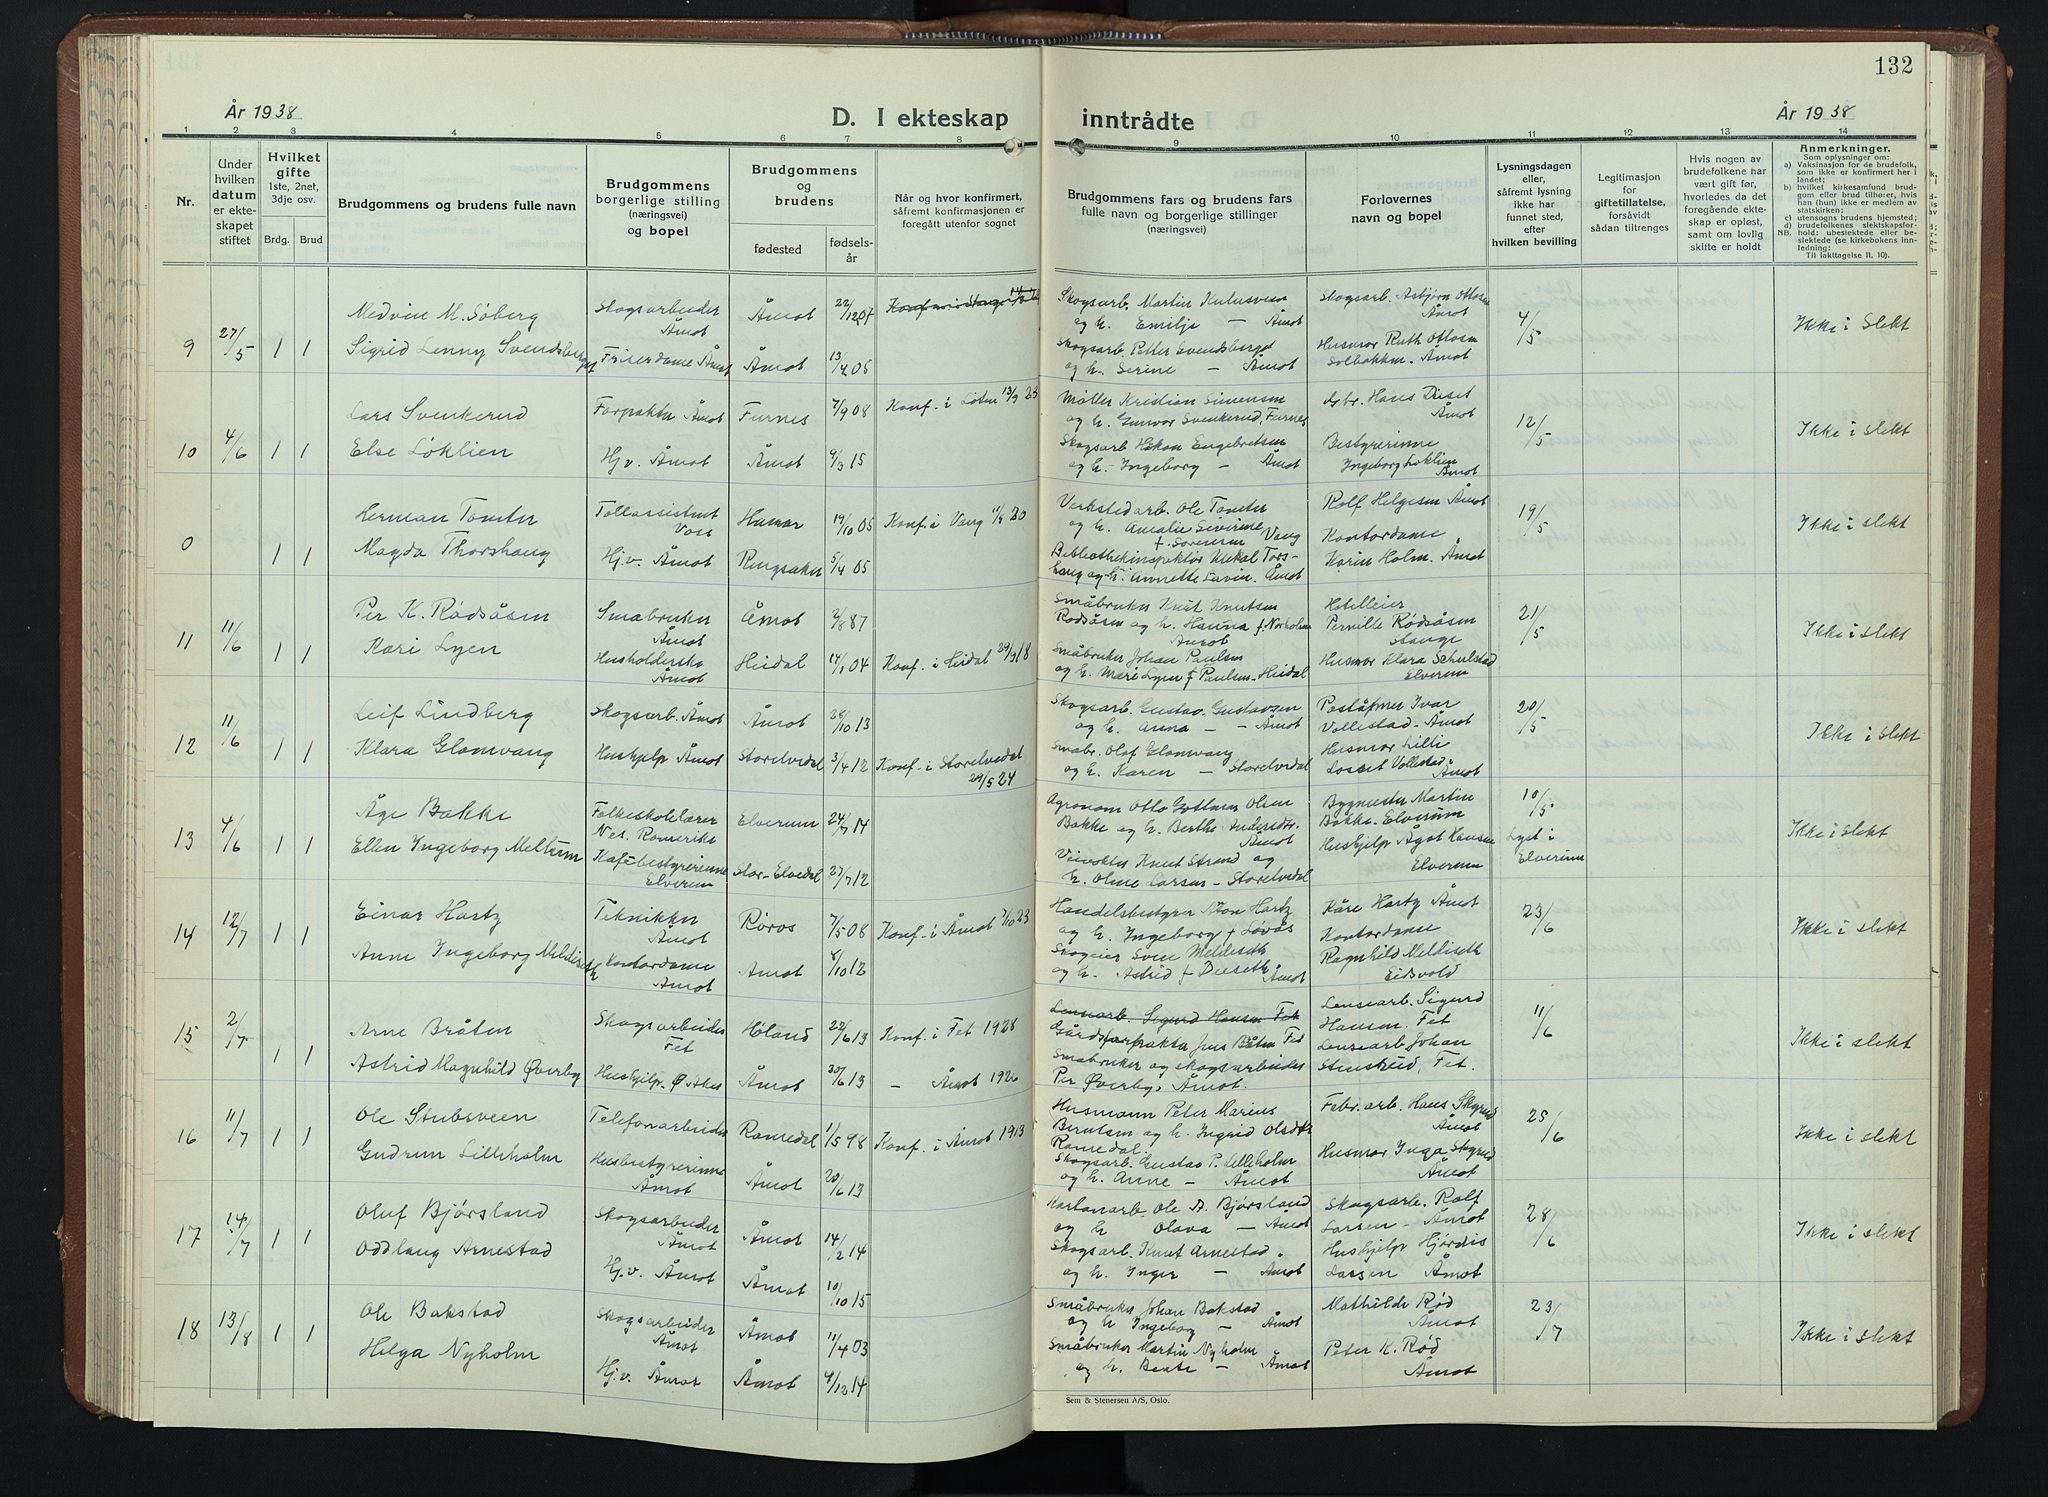 132
År 1938
D. I ekteskap
inntrådte
År 1938
1 2 3 4 5 6 7 8 9 10 11 12 13 14
Nr.
Under
hvilken
datum
er ekte-
skapet
stiftet
Hvilket
gifte
1ste, 2net,
3dje osv.
Brdg. Brud
Brudgommens og brudens fulle navn
Brudgommens
borgerlige stilling
(næringsvei)
og bopel
Brudgommens
og
brudens
fødested
fødsels-
år
Når og hvor konfirmert,
såfremt konfirmasjonen er
foregått utenfor sognet
Brudgommens fars og brudens fars
fulle navn og borgerlige stillinger
(næringsvei)
Forlovernes
navn og bopel
Lysningsdagen
eller,
såfremt lysning
ikke har
funnet sted,
efter
hvilken bevilling
Legitimasjon
for
giftetillatelse,
forsåvidt
sådan tiltrenges
Hvis nogen av
brudefolkene har
vært gift før,
hvorledes da det
foregående ekte-
skap er opløst,
samt om lovlig
skifte er holdt
Anmerkninger.
Som oplysninger om:
a) Vaksinasjon for de brudefolk,
som ikke er konfirmert her i
landet;
b) hvilket kirkesamfund brud-
gom eller brud tilhører, hvis
han (hun) ikke er medlem av
statskirken;
c) utensogns brudens hjemsted;
d) brudefolkenes slektskapsfor-
hold: ubeslektede eller be-
slektede (se kirkebokens inn-
ledning:
Til iakttagelse II. 10).
NB.
9 27/5 1 1
Medvin M. Søberg
Skogsarbeider
Åmot
Åmot 22/12 07
Skogsarb. Martin Kulusveen
og h. Emilje — Åmot
Skogsarb. Asbjørn Ottosen
Åmot
4/5
Ikke i slekt
Sigrid Lenny Svendsberget
Friserdame Åmot
Åmot 13/4 05
Skogsarb. Petter Svendsberget
og h. Serine — Åmot
Husmor Ruth Ottosen
Solbakken. Åmot
10 4/6 1 1
Lars Svenkerud
Forpakter Åmot
Furnes 7/9 08
Konf. i Løten 13/9 23
Møller Kristian Simensen
og h. Gunvor Svenkerud, Furnes
Gbr. Hans Diset
Åmot
12/5
Ikke i slekt
Else Løklien
Hj.v. Åmot
Åmot 9/3 15
Skogsarb Håkon Engebretsen
og h. Ingeborg — Åmot
Bestyrerinne
Ingeborg Løklien
Åmot
0 1 1
Herman Tomter
Tollassistent
Voss
Hamar 19/10 05
Konf. i Vang 11/9 20
Verkstedarb. Ole Tomter
og h. Amalie Severine
f. Sørensen Vang
Rolf Helgesen Åmot
19/5
Ikke i slekt
Magda Thorshaug
Hj.v. Åmot
Ringsaker 5/4 05
Bibliothekinspektør Mekal Tors-
haug og h. Annette Lavin. Åmot
Kontordame
Karin Holm. Åmot
11 11/6 1 1
Per K. Rødsåsen
Småbruker
Åmot
Åmot 2/8 87
Småbruker Knut Knutsen
Rødsåsen og h. Hanna f. Norholen
Åmot
Hotelleier
Pernille Rødsåsen
Stange
21/5
Ikke i slekt
Kari Lyen
Husholderske
Åmot
Heidal 14/1 04
Konf. i Heidal 29/9 18
Småbruker Johan Paulsen
og h. Mari Lyen f. Paulsen. Heidal
Husmor Klara Schulstad
Elverum
12 11/6 1 1
Leif Lindberg
Skogsarb. Åmot
Åmot 28/10 13
Skogsarb. Gustav Gustavsen
og h. Anna — Åmot
Poståpner Ivar
Vollestad. Åmot
20/5
Ikke i slekt
Klara Glomvang
Hushjelp Åmot
Storelvedal 3/4 12
Konf. i Storelvedal
29/5 27
Småbr. Olof Glomvang
og h. Karen — Storelvedal
Husmor Lilli
Losset Vollestad
Åmot
13 4/6 1 1
Åge Bakke
Folkeskolelærer
Nes. Romerike
Elverum 24/7 14
Agronom Otto Gottmar Olsen
Bakke og h. Berthe Andersdtr.
Åmot
Bygmester Martin
Bakke. Elverum
10/5
Lyst i
Elverum
Ikke i slekt
Ellen Ingeborg Meltum
Kafébestyrerinne
Elverum
Stor-Elvedal 27/7 12
Veivokter Knut Strand og
h. Olme Larsen. Storelvedal
Hushjelp Ågot Hansen
Elverum
14 12/7 1 1
Einar Hartz
Tekniker
Åmot
Røros 7/5 08
Konf. i Åmot 7/10 23
Handelsbestyrer Aron Hartz
og h. Ingeborg f. Løvås
Kåre Hartz Åmot
23/6
Ikke i slekt
Anne Ingeborg Meldiseth
Kontordame
Åmot
Åmot 8/10 12
Skogeier Sven Meldiseth
og h. Astrid f. Diseth Åmot
Kontordame
Ragnhild Meldiseth
Eidsvold
15 2/7 1 1
Arne Bråten
Skogsarbeider
Fet
Høland 22/6 13
Konf. i Fet 1928
Lensearb. Sigurd Hansen Fet
Gårdsforpakter Jens Bråten Fet
Lensearb. Sigurd
Hansen. Fet
11/6
Ikke i slekt
Astrid Magnhild Øverby
Hushjelp. Ø. Aker
Åmot 30/6 13
— Åmot 1926
Småbruker og skogsarbeider
Per Øverby, Åmot.
Lensearb Johan
Stenskrud, Fet.
16 11/7 1 1
Ole Stubsveen
Telefonarbeider
Romedal 1/5 98
Konf. i Åmot 1913
Husmann Peter Marius
Berntsen og h. Ingrid Olsdtr
Romedal.
Febr. arb. Hans Skyrud
Åmot
25/6
Ikke i slekt
Gudrun Lilleholm
Husbestyrerinne
Åmot
Åmot 20/6 13
Skogsarb. Gustav P. Lilleholm
og h. Anne — Åmot
Husmor Inga Skyrud
Åmot
17 14/7 1 1
Oluf Bjørsland
Skogsarbeider
Åmot
Åmot 14/2 14
Kartonarb. Ole A. Bjørsland
og h. Olava — Åmot
Skogsarb. Rolf
Larsen — Åmot
28/6
Ikke i slekt
Oddlaug Arnestad
Hj.v. Åmot
Åmot 10/10 15
Skogsarb. Knut Arnestad
og h. Inger — Åmot
Hushjelp Hjørdis
Larsen Åmot
18 13/8 1 1
Ole Bakstad
Skogsarbeider
Åmot
Åmot 11/4 03
Småbruker Johan Bakstad
og h. Ingeborg — Åmot
Mathilde Rød
Åmot
23/7
Ikke i slekt
Helga Nyholm
Hj.v. Åmot
Åmot 4/12 14
Småbruker Martin Nyholm
og h. Beate — Åmot
Peter K. Rød
Åmot
Sem & Stenersen A/S, Oslo.